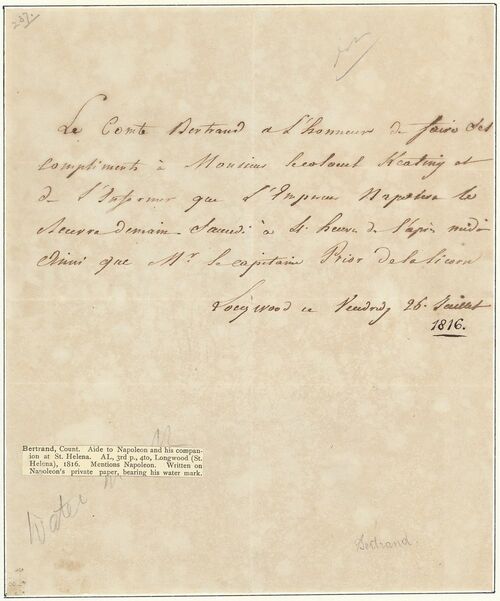 237.
Le Comte Bertrand a L'honneur de faire ses
compliments à Monsieur le colonel Keating et
de L'Informer que L'Empereur Napoleon le
Recevra demain Samedi à 4 heures de L'après midi
Ainsi que Mr. le capitaine Prior de la licorn
Longwood ce Vendredy 26. Juillet
1816.
Bertrand, Count. Aide to Napoleon and his compan-
ion at St. Helena. AL, 3rd p., 4to, Longwood (St.
Helena), 1816. Mentions Napoleon. Written on
Napoleon's private paper, bearing his water mark.
Water
Bertrand.